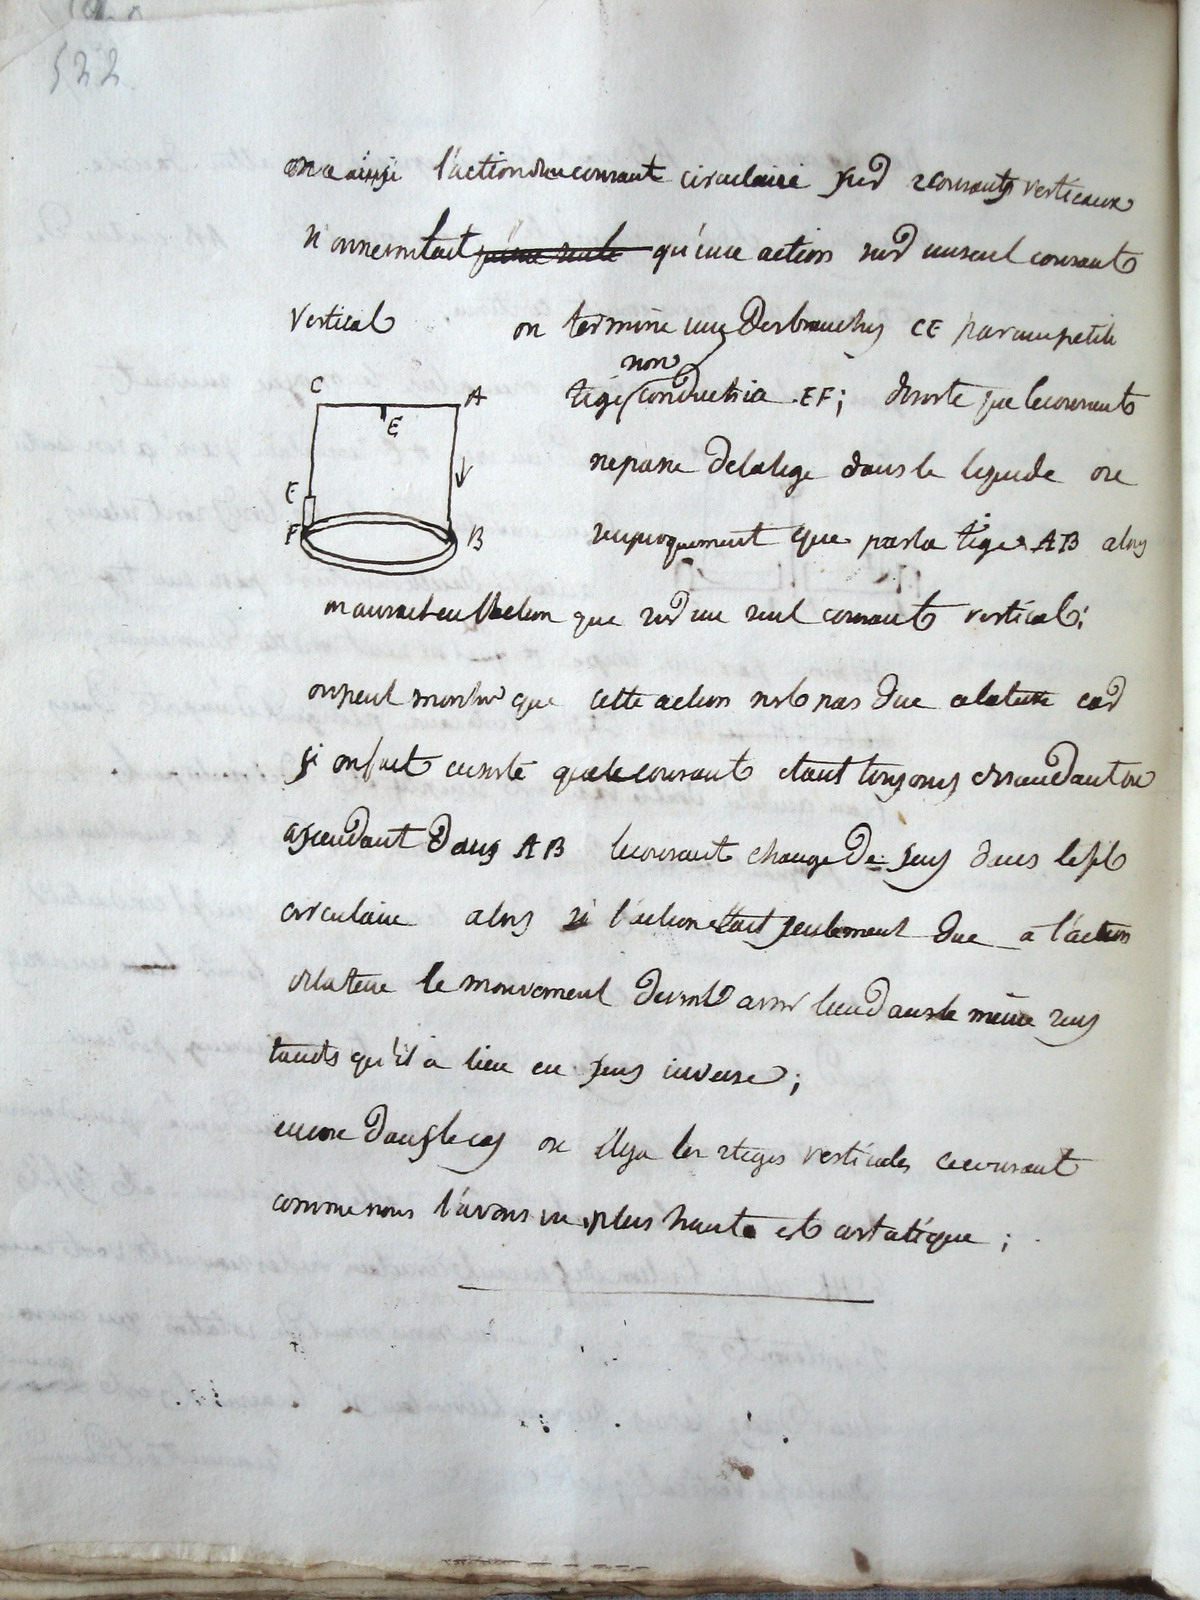 522
on a ainsi l'action du courant circulaire sur 2 courants verticaux
si on ne voulait qu'une seule qu'une action sur un seul courant
vertical on termine une des branches CE par une petite
non
tige conductrice EF; de sorte que le courant
ne passe de la tige dans le liquide ou
reciproquement que par la tige AB alors
on aurait eu l'action que sur un seul courant vertical;
on peut montrer que cette action n'est pas due a la terre car
si on fait en sorte que le courant etant toujours descendant ou
ascendant dans AB le courant change de sens dans le fil
circulaire alors si l'action etait seulement due a l'action
de la terre le mouvement devrait avoir lieu dans le même sens
tandis qu'il a lieu en sens inverse;
encore dans le cas ou il y a les 2 tiges verticales ce courant
comme nous l'avons vu plus haut est astatique;
C
A
E
E
F
B